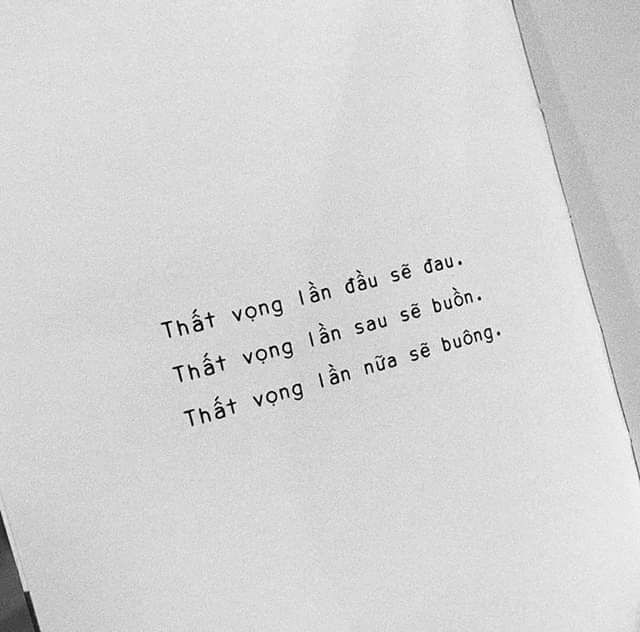 Thất vọng lần đầu sẽ đau.
Thất vọng lần sau sẽ buồn.
Thất vọng lần nữa sẽ buông.